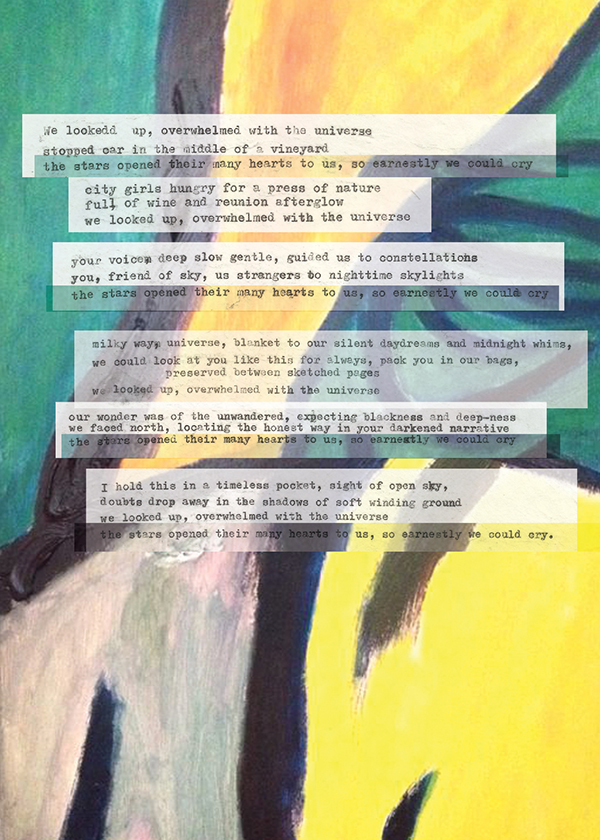 We lookedd up, overwhelmed with the universe
stopped car in the middle of a vineyard
the stars opened their many hearts to us, so earnestly we could cry
city girls hungry for a press of nature
full of wine and reunion afterglow
we looked up, overwhelmed with the universe
your voice, deep slow gentle, guided us to constellations
you, friend of sky, us strangers to nighttime skylights
the stars opened their many hearts to us, so earnestly we could cry
milky way, universe, blanket to our silent daydreams and midnight whims,
we could look at you like this for always, pack you in our bags,
preserved between sketched pages
we looked up, overwhelmed with the universe
our wonder was of the unwandered, expecting blackness and deep-ness
we faced north, locating the honest way in your darkened narrative
the stars opened their many hearts to us, so earnestly we could cry
I hold this in a timeless pocket, sight of open sky,
doubts drop away in the shadows of soft winding ground
we looked up, overwhelmed with the universe
the stars opened their many hearts to us, so earnestly we could cry.